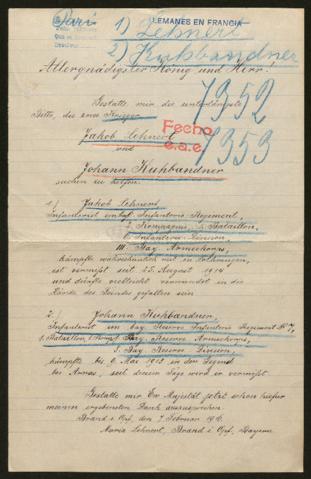 Paris
ALEMANES EN FRANCIA
1) Lehnert
2) Kuhbandner
Allergnädigster König und Herr!
7352
7353
Fecho
e.a.e.
Gestatte mir die unterthänigste
Bitte, die zwei Krieger
Jakob Lehnert
und
Johann Kuhbandner
suchen zu helfen.
1.) Jakob Lehnert
Infanterist Infanterie Regiment,
Kompagnie, Bataillon,
Infanterie Division,
III. Bay. Armeekorps,
kämpfte wahrscheinlich mit in Lothringen,
ist vermißt seit 25. August 1914
und dürfte vielleicht verwundet in die
Hände des Feindes gefallen sein.
2.) Johann Kuhbandner,
Infanterist im bay. Reserve Infanterie Regiment No 7,
Bataillon, Bay. Reserve Armeekorps,
5. Bay. Reserve Division,
kämpfte bis 9. Mai 1915 in der Gegend
bei Arras, seit diesem Tage wird er vermißt.
Gestatte mir Ew. Majestät jetzt schon hiefür
meinen ergebensten Dank auszusprechen.
Brand i. Opf. den 7. Februar
Maria Lehnert, Brand i. Opf., Bayern.